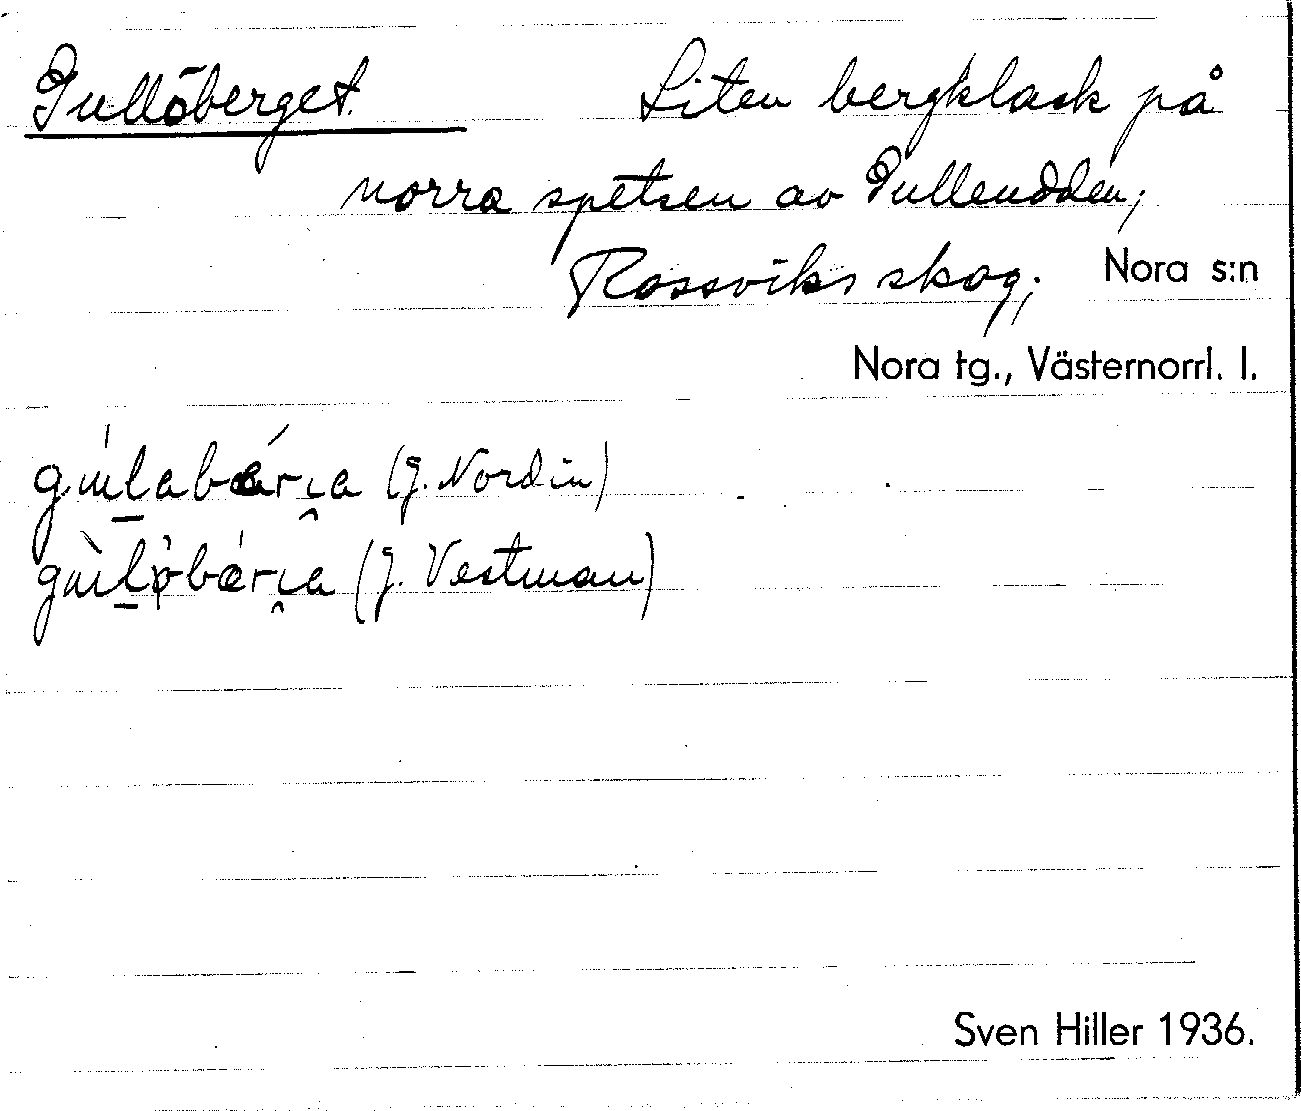 Gullöberget. Liten bergklack på
norra spetsen av Gullenudden;
Rossviks skog; Nora s:n
Nora tg., Västernorrl. l.
(J. Nordin)
(J. Vestman)
Sven Hiller 1936.